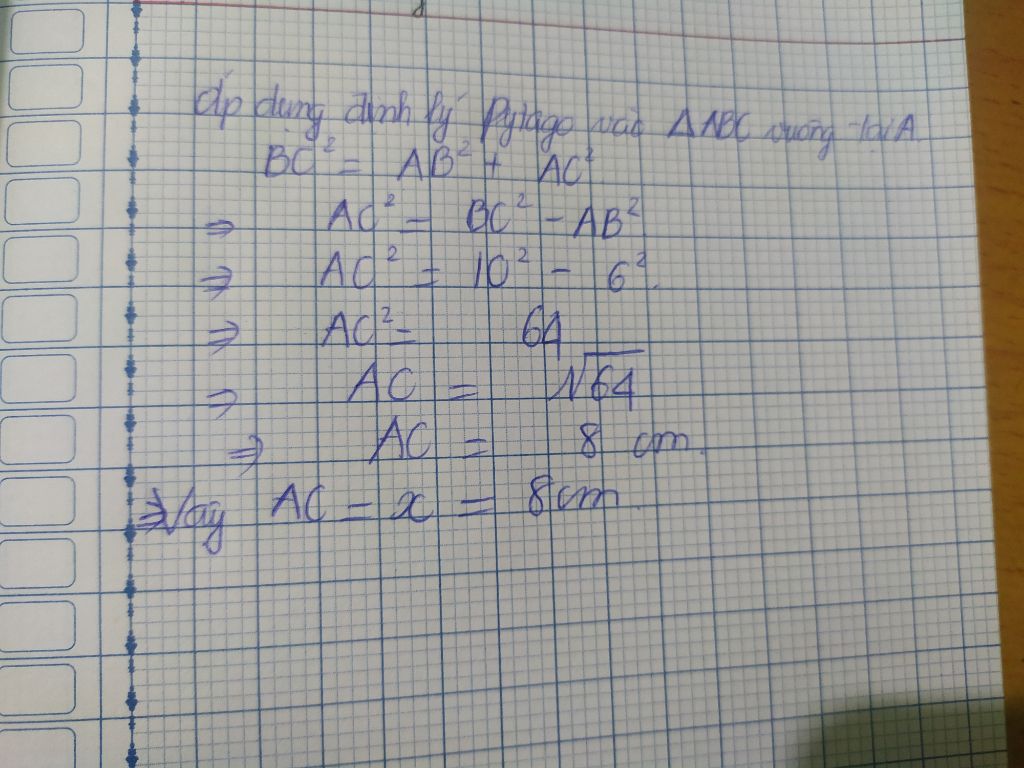 Áp dụng định lý Pytago vào △ABC vuông tại A.
BC² = AB² + AC²
⇒ AC² = BC² - AB²
⇒ AC² = 10² - 6².
⇒ AC² = 64
⇒ AC = √64
⇒ AC = 8 cm.
⇒ Vậy AC = x = 8cm.